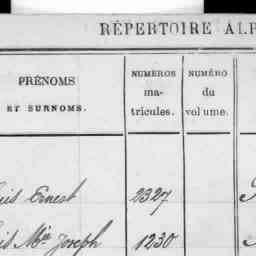 RÉPERTOIRE ALP
PRÉNOMS
ET SURNOMS.
NUMÉROS
ma-
tricules.
NUMÉRO
du
volume.
Ernest 2327
Mie Joseph 1230